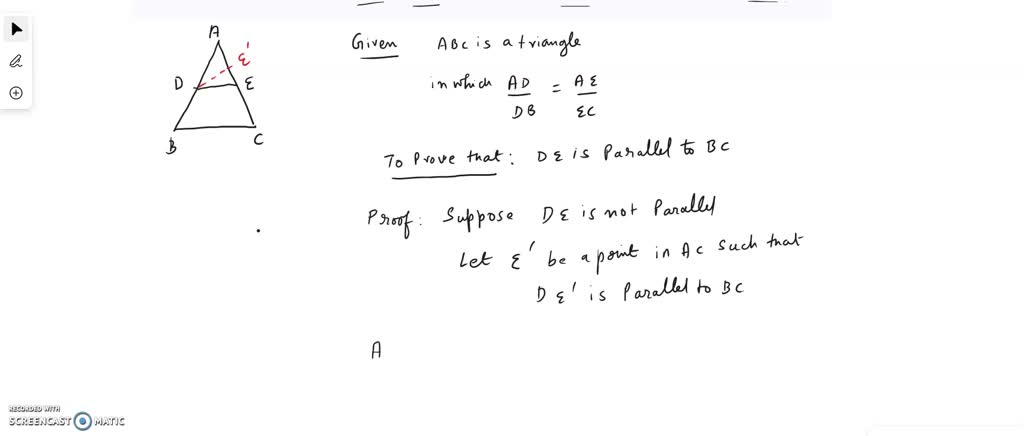 A
E'
D
E
B
C
Given ABC is a triangle
in which AD/DB = AE/EC
To Prove that: DE is Parallel to BC
Proof: Suppose DE is not Parallel
Let E' be a point in AC such that
DE' is Parallel to BC
A
RECORDED WITH
SCREENCAST MATIC